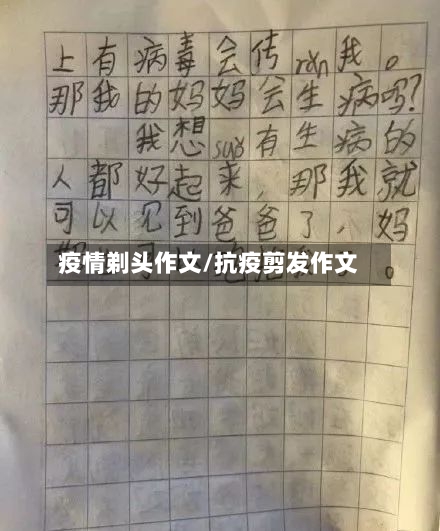 上有病毒会传rǎn我。
那我的妈妈会生病吗?
我想suǒ有生病的
人都好起来,那我就
可以见到爸爸了,妈
疫情剃头作文/抗疫剪发作文
。